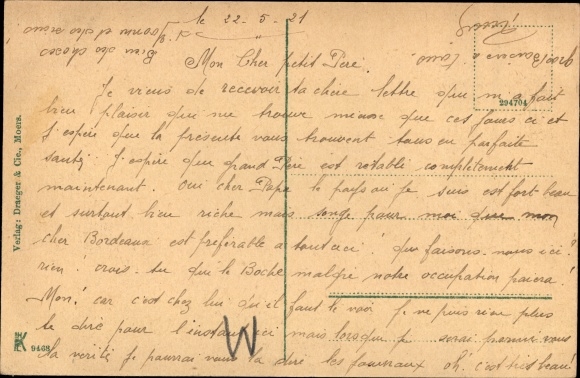 le 22-5-21
Mon Cher petit Père.
Je viens de recevoir ta chère lettre qui m'a fait
bien plaisir qui me trouve mieux que ces jours ci et
J'espère que la présente vous trouvent tous en parfaite
santé. J'espère que grand Père est rétabli complètement
maintenant. Oui cher Papa le pays où je suis est fort beau
et surtout bien riche mais songe pour moi que mon
cher Bordeaux est préférable a tout ceci! que faisons-nous ici?
rien! crois-tu que le Boche malgré notre occupation paiera!
Non! car c'est chez lui qu'il faut le voir je ne puis rien plus
te dire pour l'instant ici mais lorsque je serai parmi vous
la vérité je pourrai vous la dire les journaux oh! c'est très beau!
Bien des choses
294704
Verlag: Draeger & Cie., Moers.
9468
W